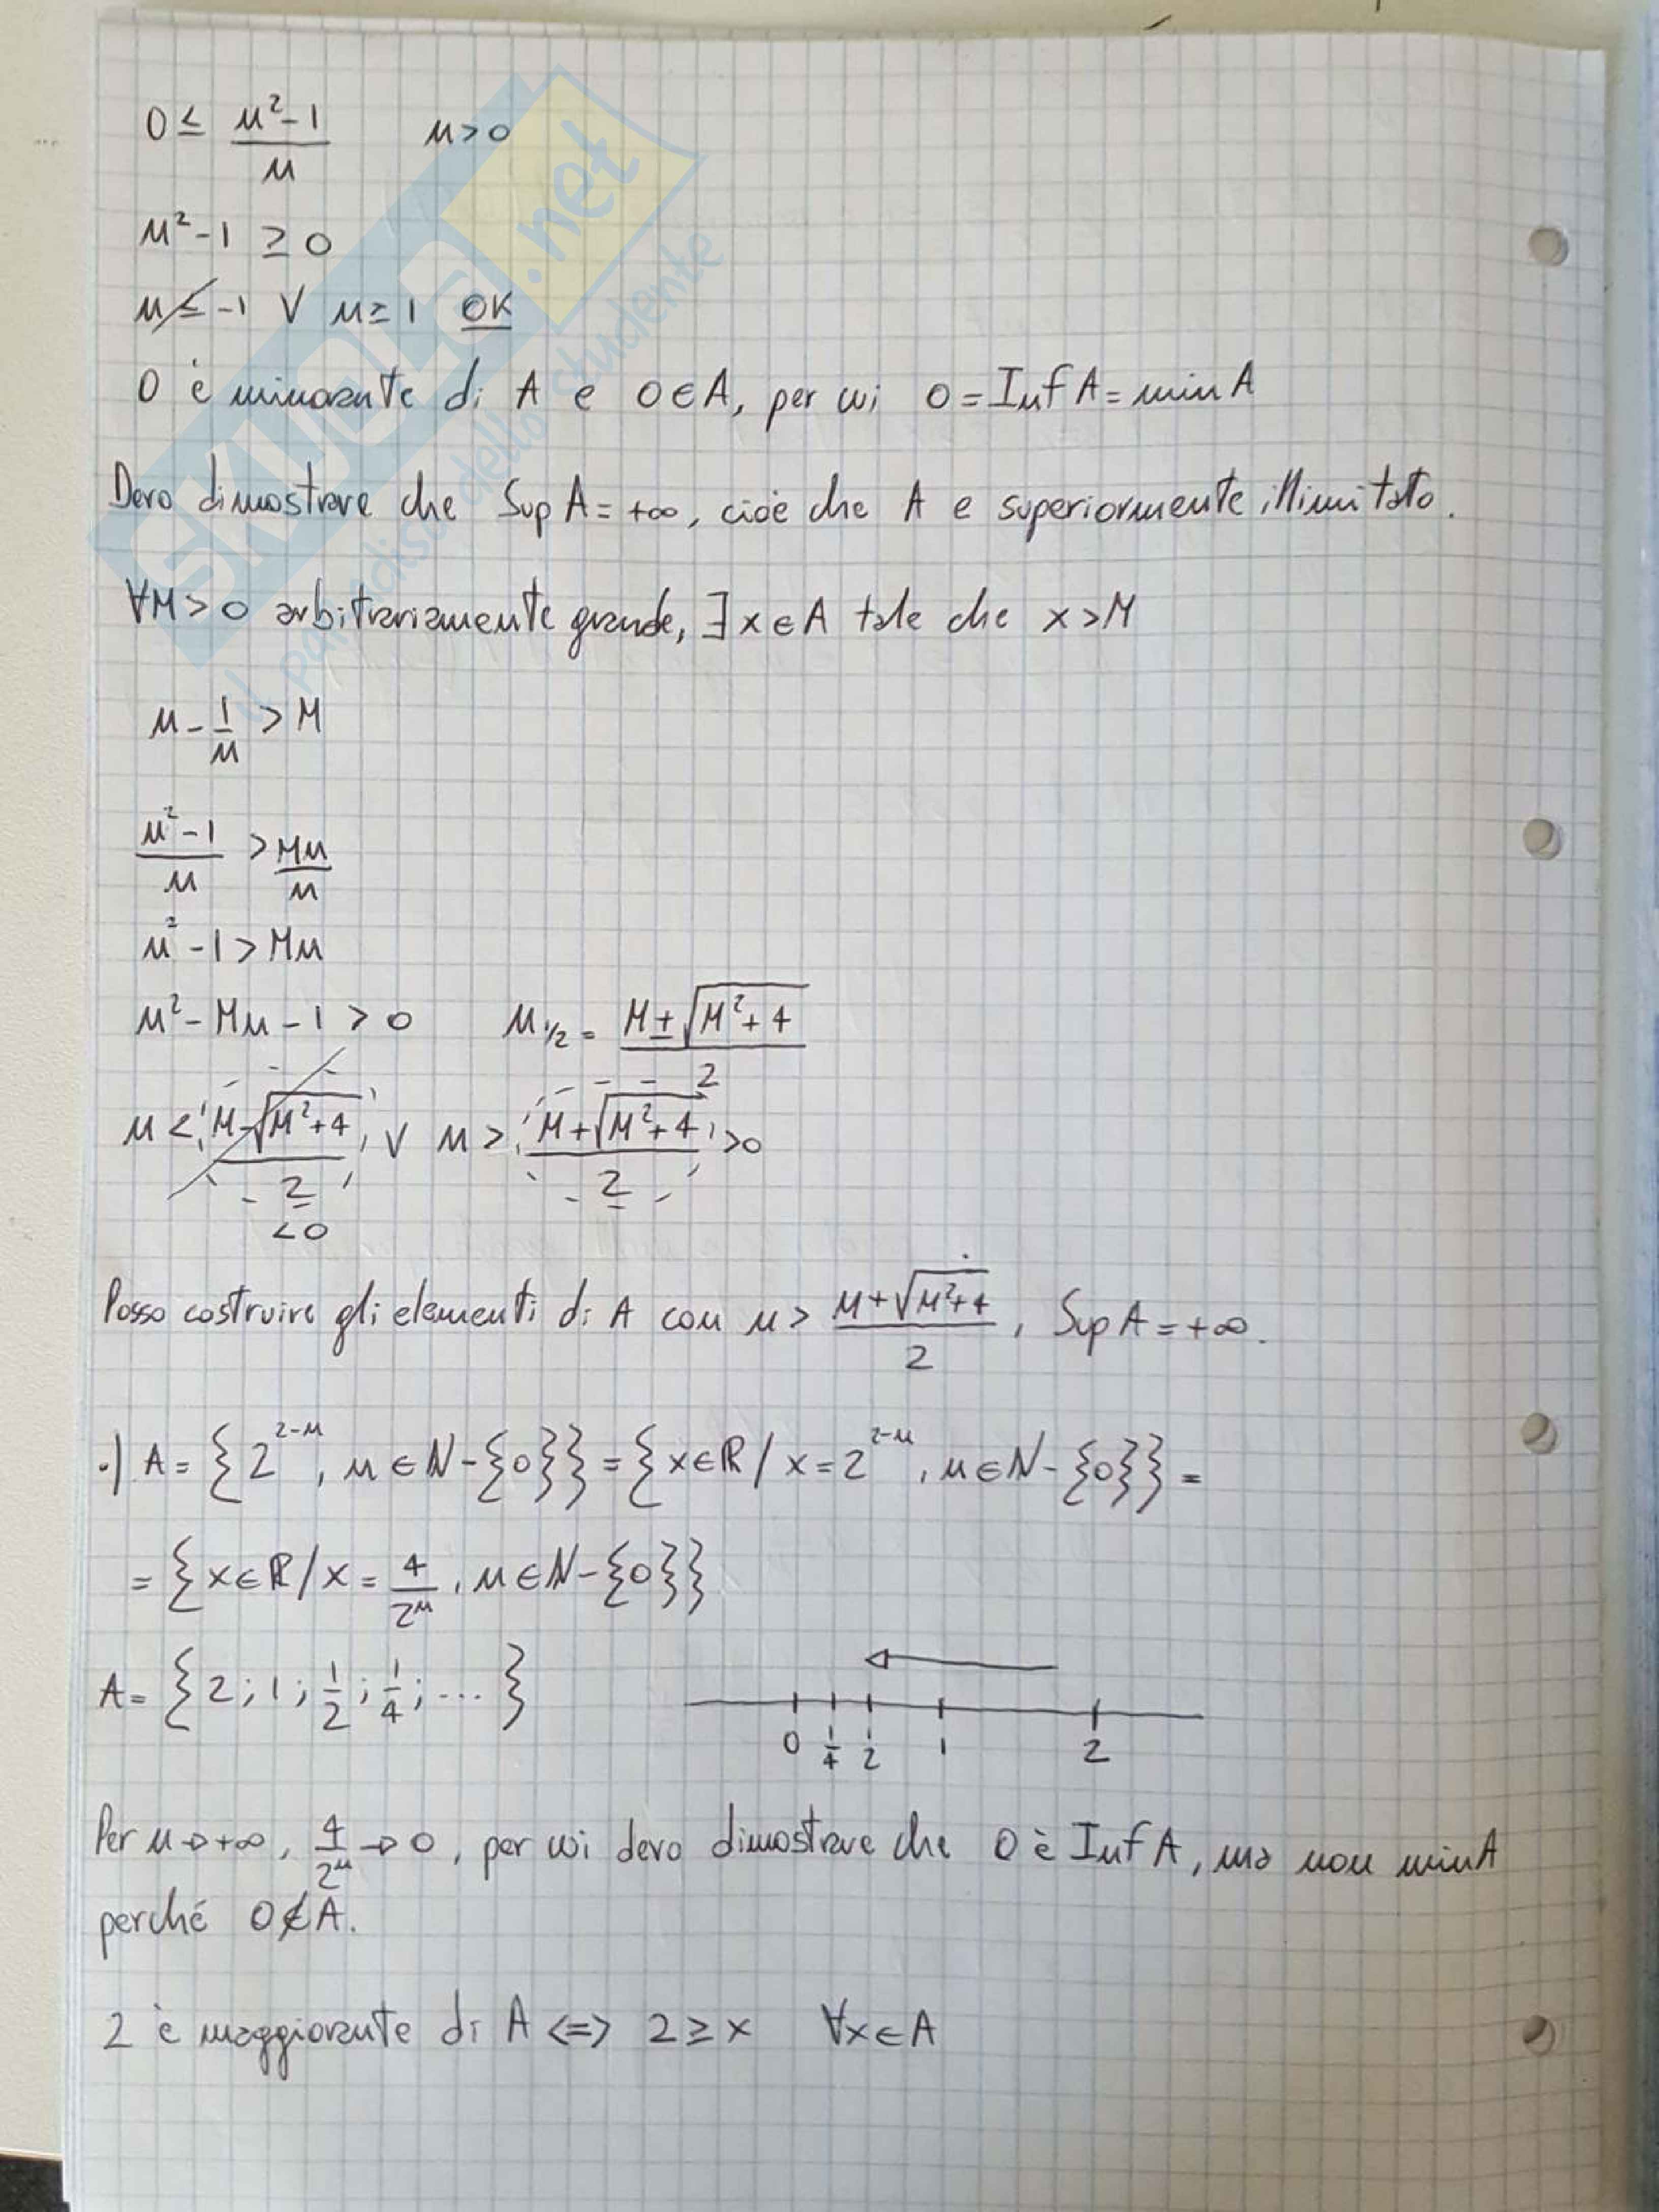 0 ≤ (n²-1)/n    n>0
n²-1 ≥ 0
n≤-1 ∨ n≥1 OK
0 è minorante di A e 0∈A, per cui 0=Inf A=min A
Devo dimostrare che Sup A=+∞, cioè che A e superiormente illimitato.
∀M>0 arbitrariamente grande, ∃x∈A tale che x>M
n-1/n > M
(n²-1)/n > Mn/n
n²-1>Mn
n²-Mn-1>0    n1/2 = (M±√(M²+4))/2
n < (M-√(M²+4))/2 ∨ n > (M+√(M²+4))/2 >0
<0
Posso costruire gli elementi di A con n > (M+√(M²+4))/2, Sup A=+∞.
·) A={2^(2-n), n∈N-{0}}={x∈R/x=2^(2-n), n∈N-{0}}=
={x∈R/x=4/2^n, n∈N-{0}}
A={2;1;1/2;1/4;...}
0 1/4 1/2 1 2
Per n→+∞, 4/2^n→0, per cui devo dimostrare che 0 è Inf A, ma non min A
perché 0∉A.
2 è maggiorante di A <=> 2≥x ∀x∈A
SKUOLA.net
il paradiso dello studente